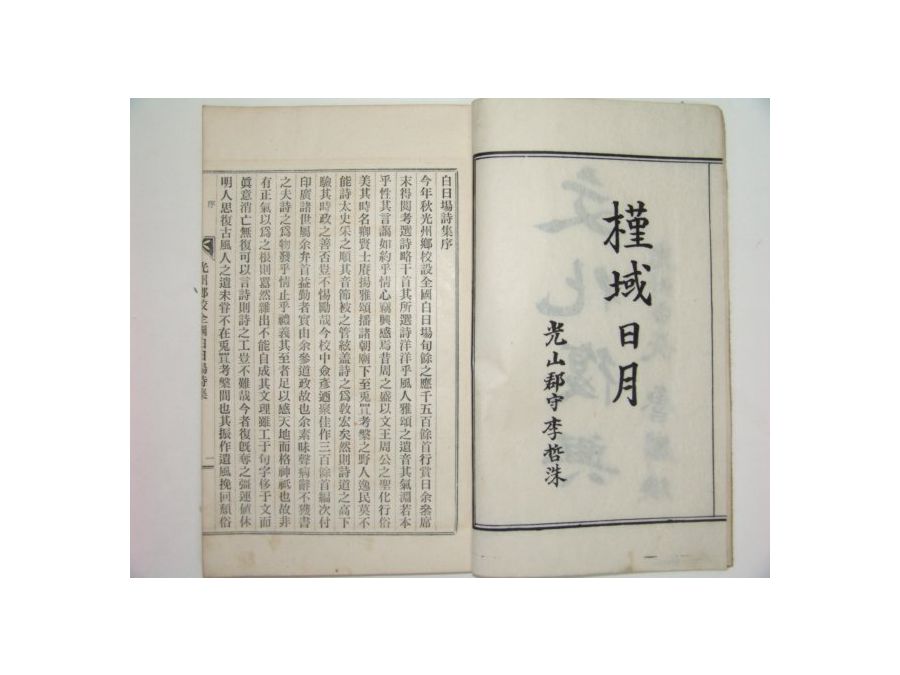 槿域日月
光山郡守李哲洙
白日場詩集序
今年秋光州鄕校設全國白日場旬餘之應千五百餘首行賞日余叅席
末得閱考選詩略干首其所選詩洋洋乎風人雅頌之遺音其氣淵若本
乎性其言謁如約乎情心竊興感焉昔周之盛以文王周公之聖化行俗
美其時名卿賢士賡揚雅頌播諸朝廟下至兎罝考槃之野人逸民莫不
能詩太史采之順其音節被之管絃盖詩之爲敎宏矣然則詩道之高下
驗其時政之善否豈不惕勵哉今校中僉彦迺聚佳作三百餘首編次付
印廣諸世屬余弁首益勤者實由余參道政故也余素昧聲病辭不獲書
之夫詩之爲物發乎情止乎禮義其至者足以感天地而格神祇也故非
有正氣以爲之根則囂然雜出不能自成其文理雖工于句字侈于文而
眞意消亡無復可以言詩則詩之工豈不難哉今者復旣奪之彊運値休
明人思復古風人之遺未甞不在兎罝考槃間也其振作遺風挽回頹俗
序
光州鄕校全國白日場詩集
一